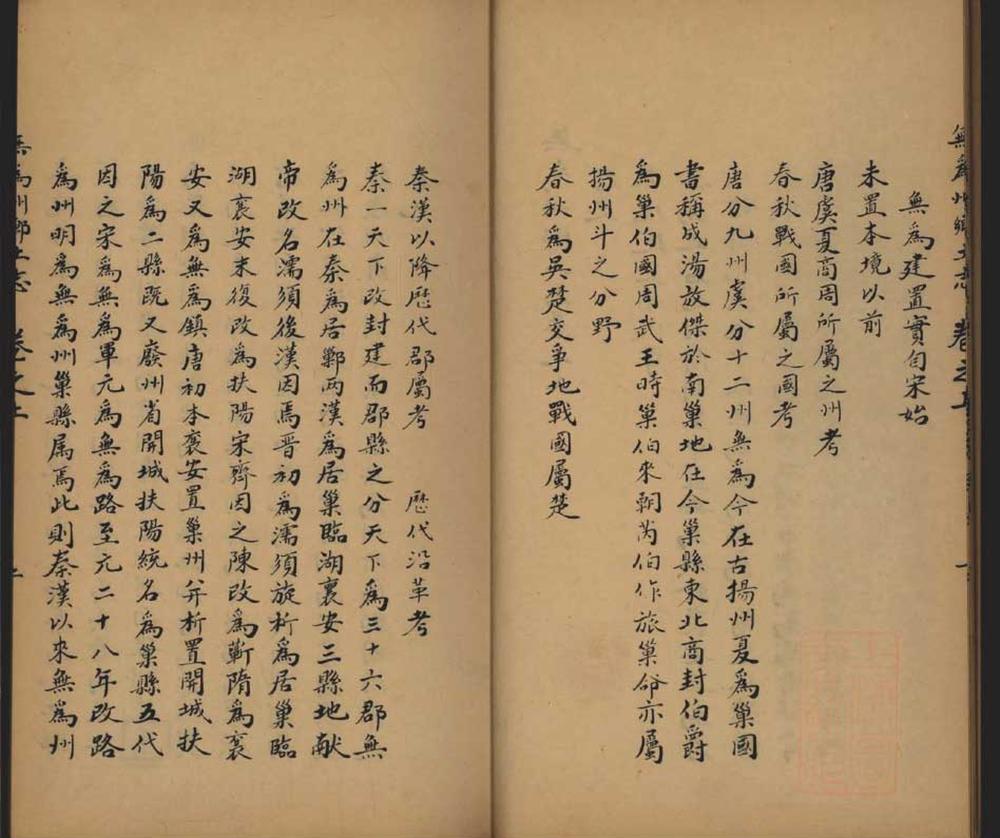 無爲州鄉土志 卷之上
無爲建置實自宋始
未置本境以前
唐虞夏商周所屬之州考
春秋戰國所屬之國考
唐分九州虞分十二州無爲今在古揚州夏爲巢國
書稱成湯放傑於南巢地在今巢縣東北商封伯爵
爲巢伯國周武王時巢伯來朝芮伯作旅巢命亦屬
揚州斗之分野
春秋爲吳楚交爭地戰國屬楚
秦漢以降歷代郡屬考 歷代沿革考
秦一天下改封建而郡縣之分天下爲三十六郡無
爲州在秦爲居鄛兩漢爲居巢臨湖襄安三縣地献
帝改名濡須後漢因焉晉初爲濡須旋析爲居巢臨
湖襄安末復改爲扶陽宋齊因之陳改爲蘄隋爲襄
安又爲無爲鎮唐初本襄安置巢州并析置開城扶
陽爲二縣既又廢州省開城扶陽統名爲巢縣五代
因之宋爲無爲軍元爲無爲路至元二十八年改路
爲州明爲無爲州巢縣属焉此則秦漢以來無爲州
無爲州鄉土志 卷之上